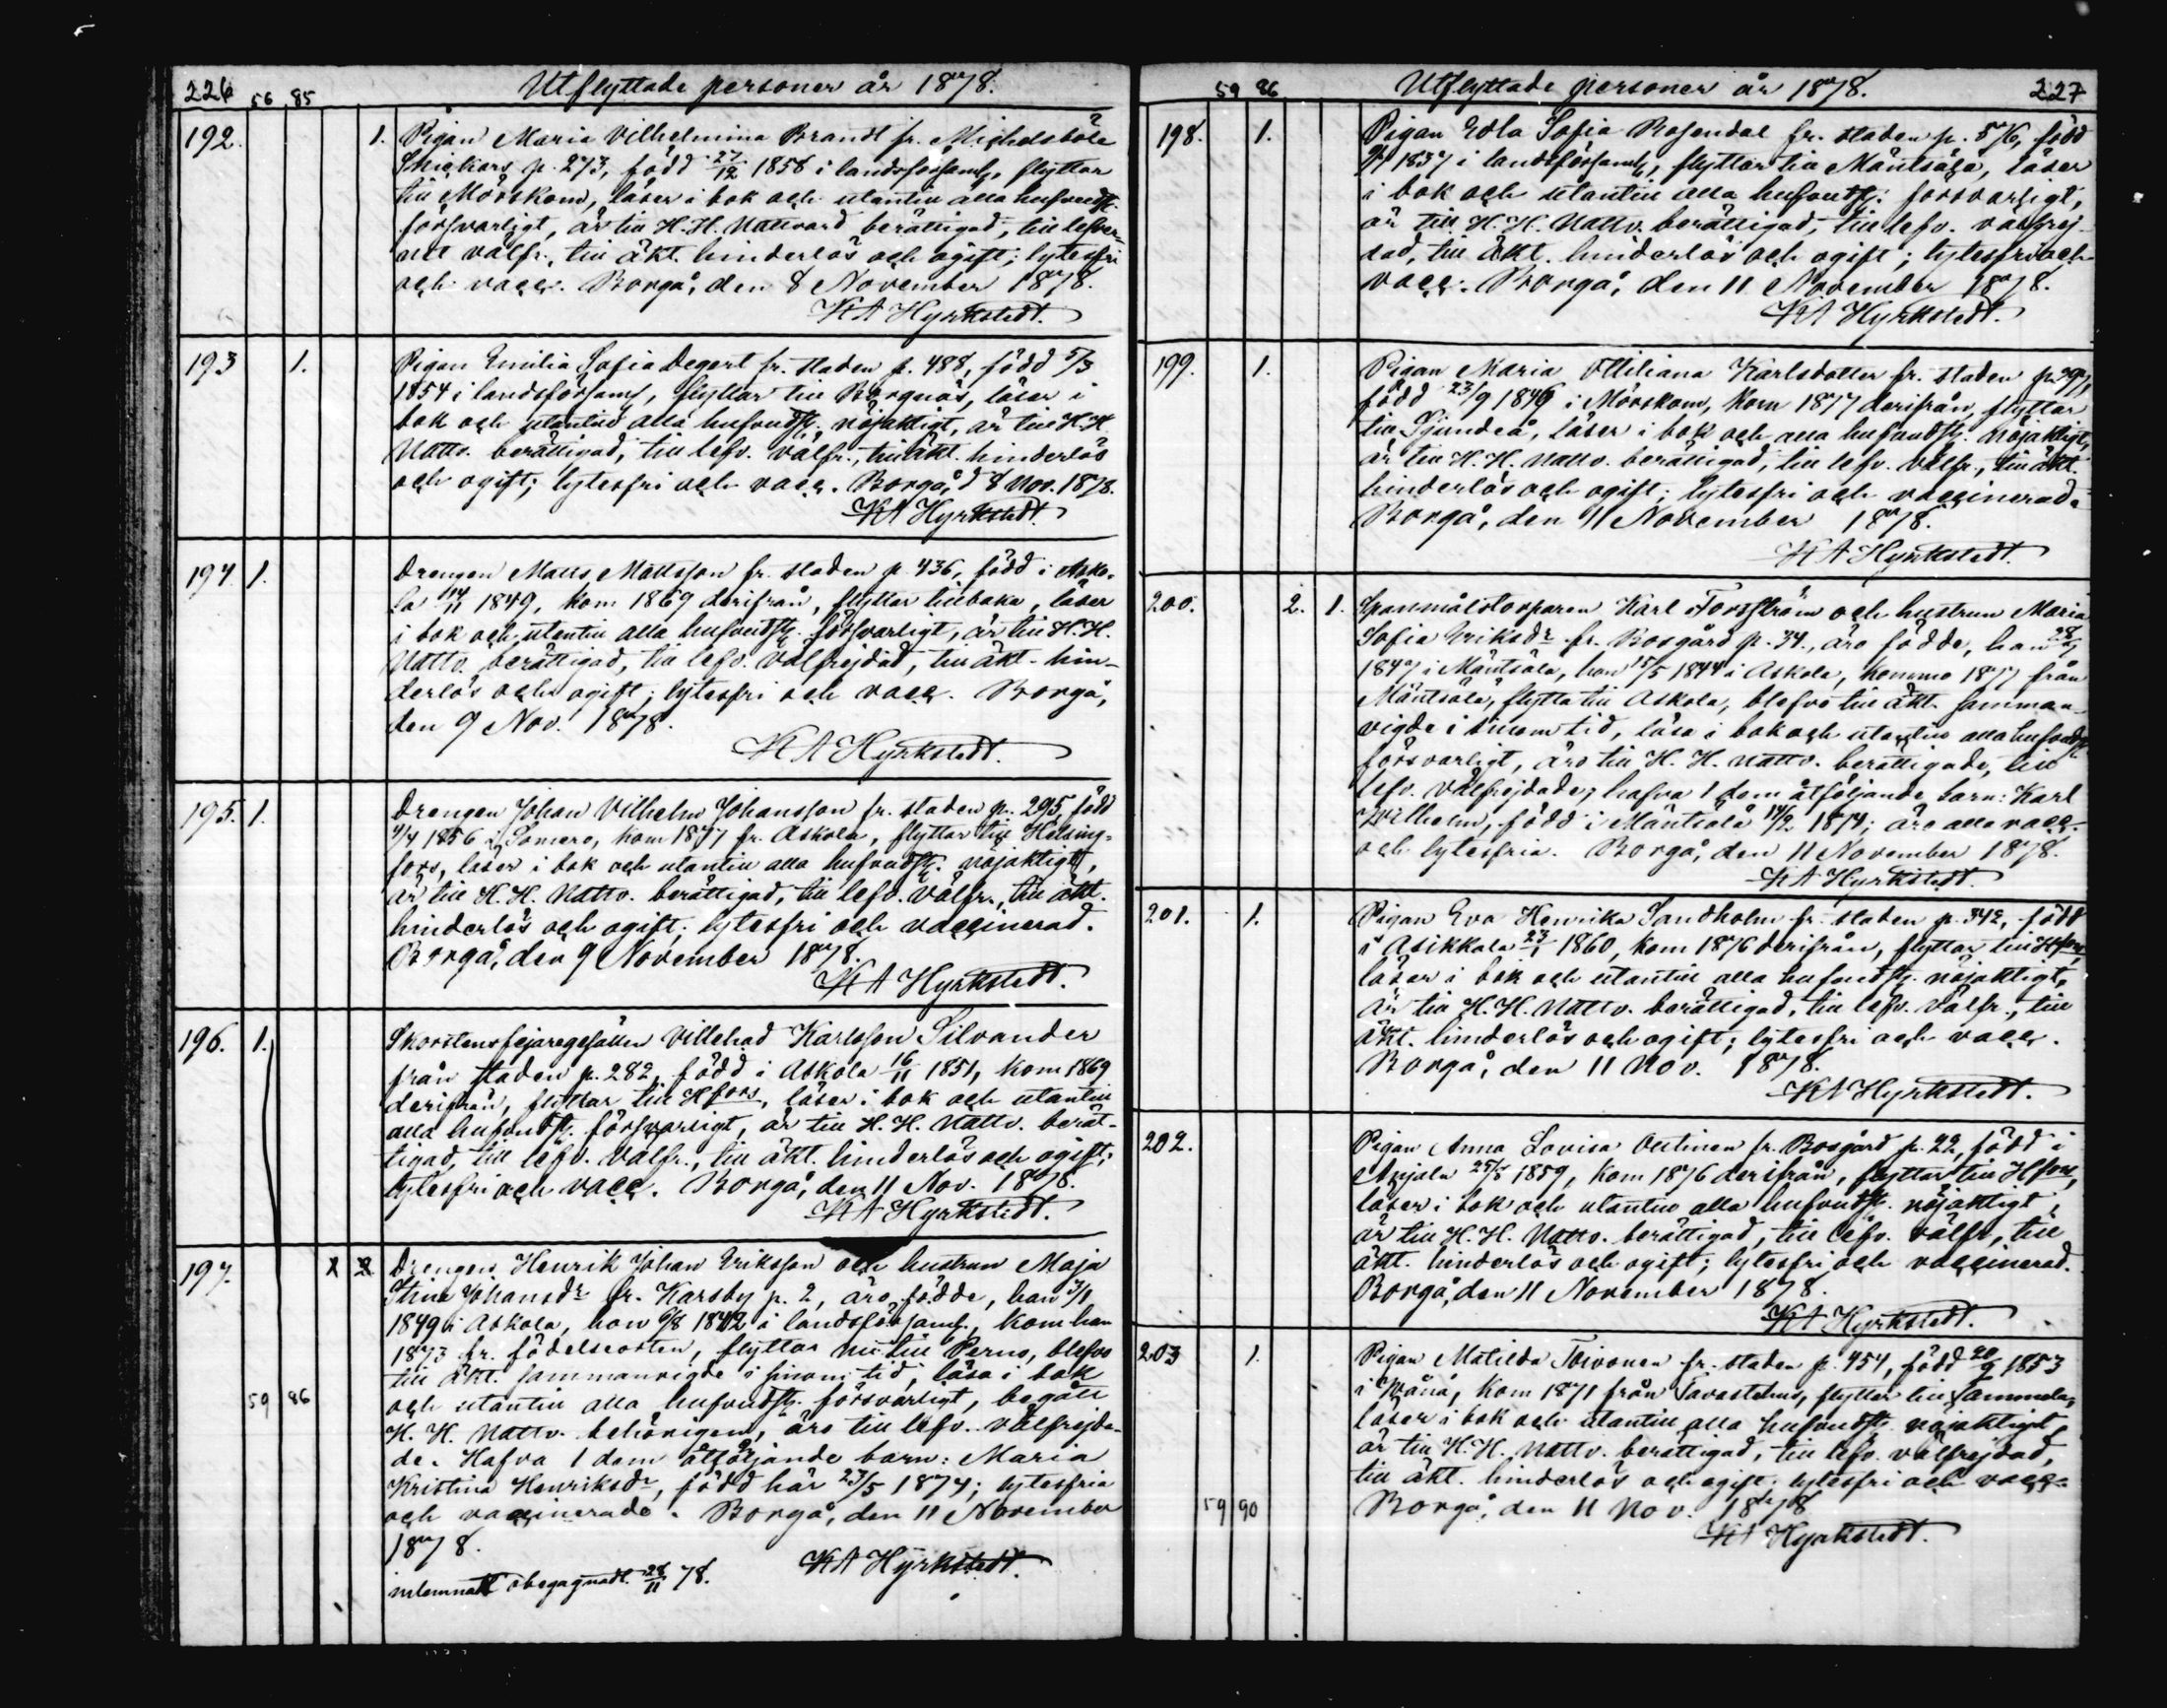 226 56 85 Utflyttade personer år 1878.
192. 1. Pigan Maria Vilhelmina Brandt fr. Mickelsböle
p. 273, född 27/12 1858 i landsförsaml, flyttar
till Mörskom, läser i bok och utantill alla hufvudst.
försvarligt, är till H. H. Nattvard berättigad, till lefver-
net välfr., till äkt. hinderlös och ogift; lytesfri
och vacc. Borgå, den 8 November 1878.
KA Hyrkstedt.
193 1. Pigan Emilia Sofia Degert fr. staden p. 488, född 5/3
1854 i landsförsaml, flyttar till Borgnäs, läser i
bok och utantill alla hufvudst. nöjaktigt, är till H. H.
Nattv. berättigad, till lefv. välfr., till äkt. hinderlös
och ogift; lytesfri och vacc. Borgå, d 8 Nov. 1878.
KA Hyrkstedt.
194. 1. Drengen Matts Mattsson fr. staden p. 436, född i Asko-
la 1849, kom 1869 derifrån, flyttar tillbaka, läser
i bok och utantill alla hufvudst. försvarligt, är till H. H.
Nattv. berättigad, till lefv. välfrejdad, till äkt. hin-
derlös och ogift; lytesfri och vacc. Borgå,
den 9 Nov. 1878.
KA Hyrkstedt.
195. 1. Drengen Johan Vilhelm Johansson fr. staden p. 295, född
4/4 1856 i Somero, kom 1877 fr. Askola, flyttar till Helsing-
fors, läser i bok och utantill alla hufvudst. nöjaktigt,
är till H. H. Nattv. berättigad, till lefv. välfr., till äkt.
hinderlös och ogift; lytesfri och vaccinerad.
Borgå, den 9 November 1878.
KA Hyrkstedt.
196. 1. Skorstensfejaregesällen Villehad Karlsson Silvander
från staden p. 282, född i Askola 16/11 1851, kom 1869
derifrån, flyttar till Hfors, läser i bok och utantill
alla hufvudst. försvarligt, är till H. H. Nattv. berät-
tigad, till lefv. välfr., till äkt. hinderlös och ogift;
lytesfri och vacc. Borgå, den 11 Nov. 1878.
KA Hyrkstedt.
197. Drengen Henrik Johan Eriksson och hustrun Maja
Stina Johansdr fr. Karsby p. 2, äro födde, han 3/1
1849 i Askola, hon 6/8 1842 i landsförsaml, kom han
1873 fr. födelseorten, flyttar nu till Perno, blefvo
till äkt. sammanvigde i sinom tid, läsa i bok
59 86 och utantill alla hufvudst. försvarligt, begått
H. H. Nattv. behörigen, äro till lefv. välfrejda-
de. Hafva 1 dem åtföljande barn: Maria
Kristina Henriksdr, född här 23/5 1874; lytesfria
och vaccinerade. Borgå, den 11 November
1878.
KA Hyrkstedt.
inlemnadt obegagnadt 28/11 78.
59 86 Utflyttade personer år 1878. 227
198. 1. Pigan Edla Sofia Rosendal fr. staden p. 576, född
1837 i landsförsaml, flyttar till Mäntsälä, läser
i bok och utantill alla hufvudst. försvarligt,
är till H. H. Nattv. berättigad, till lefv. välfrej-
dad, till äkt. hinderlös och ogift; lytesfri och
vacc. Borgå, den 11 November 1878.
KA Hyrkstedt.
199. 1. Pigan Maria Ottiliana Karlsdotter fr. staden
född 23/9 1846 i Mörskom, kom 1877 derifrån, flyttar
till Sjundeå, läser i bok och alla hufvudst. nöjaktigt,
är till H. H. Nattv. berättigad, till lefv. välfr., till äkt.
hinderlös och ogift; lytesfri och vaccinerad.
Borgå, den 11 November 1878.
KA Hyrkstedt.
200. 2. 1. Spanmålstorparen Karl Forsström och hustrun Maria
Sofia Eriksdr fr. Bosgård p. 34., äro födde, han
1847 i Mäntsälä, hon 15/5 1844 i Askola, kommo 1877 från
Mäntsälä, flytta till Askola, blefvo till äkt. samman-
vigde i sinom tid, läsa i bok och utantill alla hufvudst.
försvarligt, äro till H. H. Nattv. berättigade, till
lefv. välfrejdade; hafva 1 dem åtföljande barn: Karl
Vilhelm, född i Mäntsälä 14/2 1874; äro alla vacc.
och lytesfria. Borgå, den 11 November 1878.
KA Hyrkstedt.
201. 1. Pigan Eva Henrika Sandholm fr. staden p. 342, född
i Asikkala 1860, kom 1876 derifrån, flyttar till Hfors,
läser i bok och utantill alla hufvudst. nöjaktigt,
är till H. H. Nattv. berättigad, till lefv. välfr., till
äkt. hinderlös och ogift; lytesfri och vacc.
Borgå, den 11 Nov. 1878.
KA Hyrkstedt.
202. Pigan Anna Lovisa Outinen fr. Bosgård p. 22, född i
Anjala 1859, kom 1876 derifrån, flyttar till Hfors,
läser i bok och utantill alla hufvudst. nöjaktigt,
är till H. H. Nattv. berättigad, till lefv. välfr, till
äkt. hinderlös och ogift; lytesfri och vaccinerad.
Borgå, den 11 November 1878.
KA Hyrkstedt.
203 1. Pigan Matilda Toivonen fr. staden p. 454, född 1853
i Wånå, kom 1871 från Tavastehus, flyttar till Tammela,
läser i bok och utantill alla hufvudst. nöjaktigt,
är till H. H. Nattv. berättigad, till lefv. välfrejdad,
till äkt. hinderlös och ogift; lytesfri och vacc.
59 90 Borgå, den 11 Nov. 1878
KA Hyrkstedt.